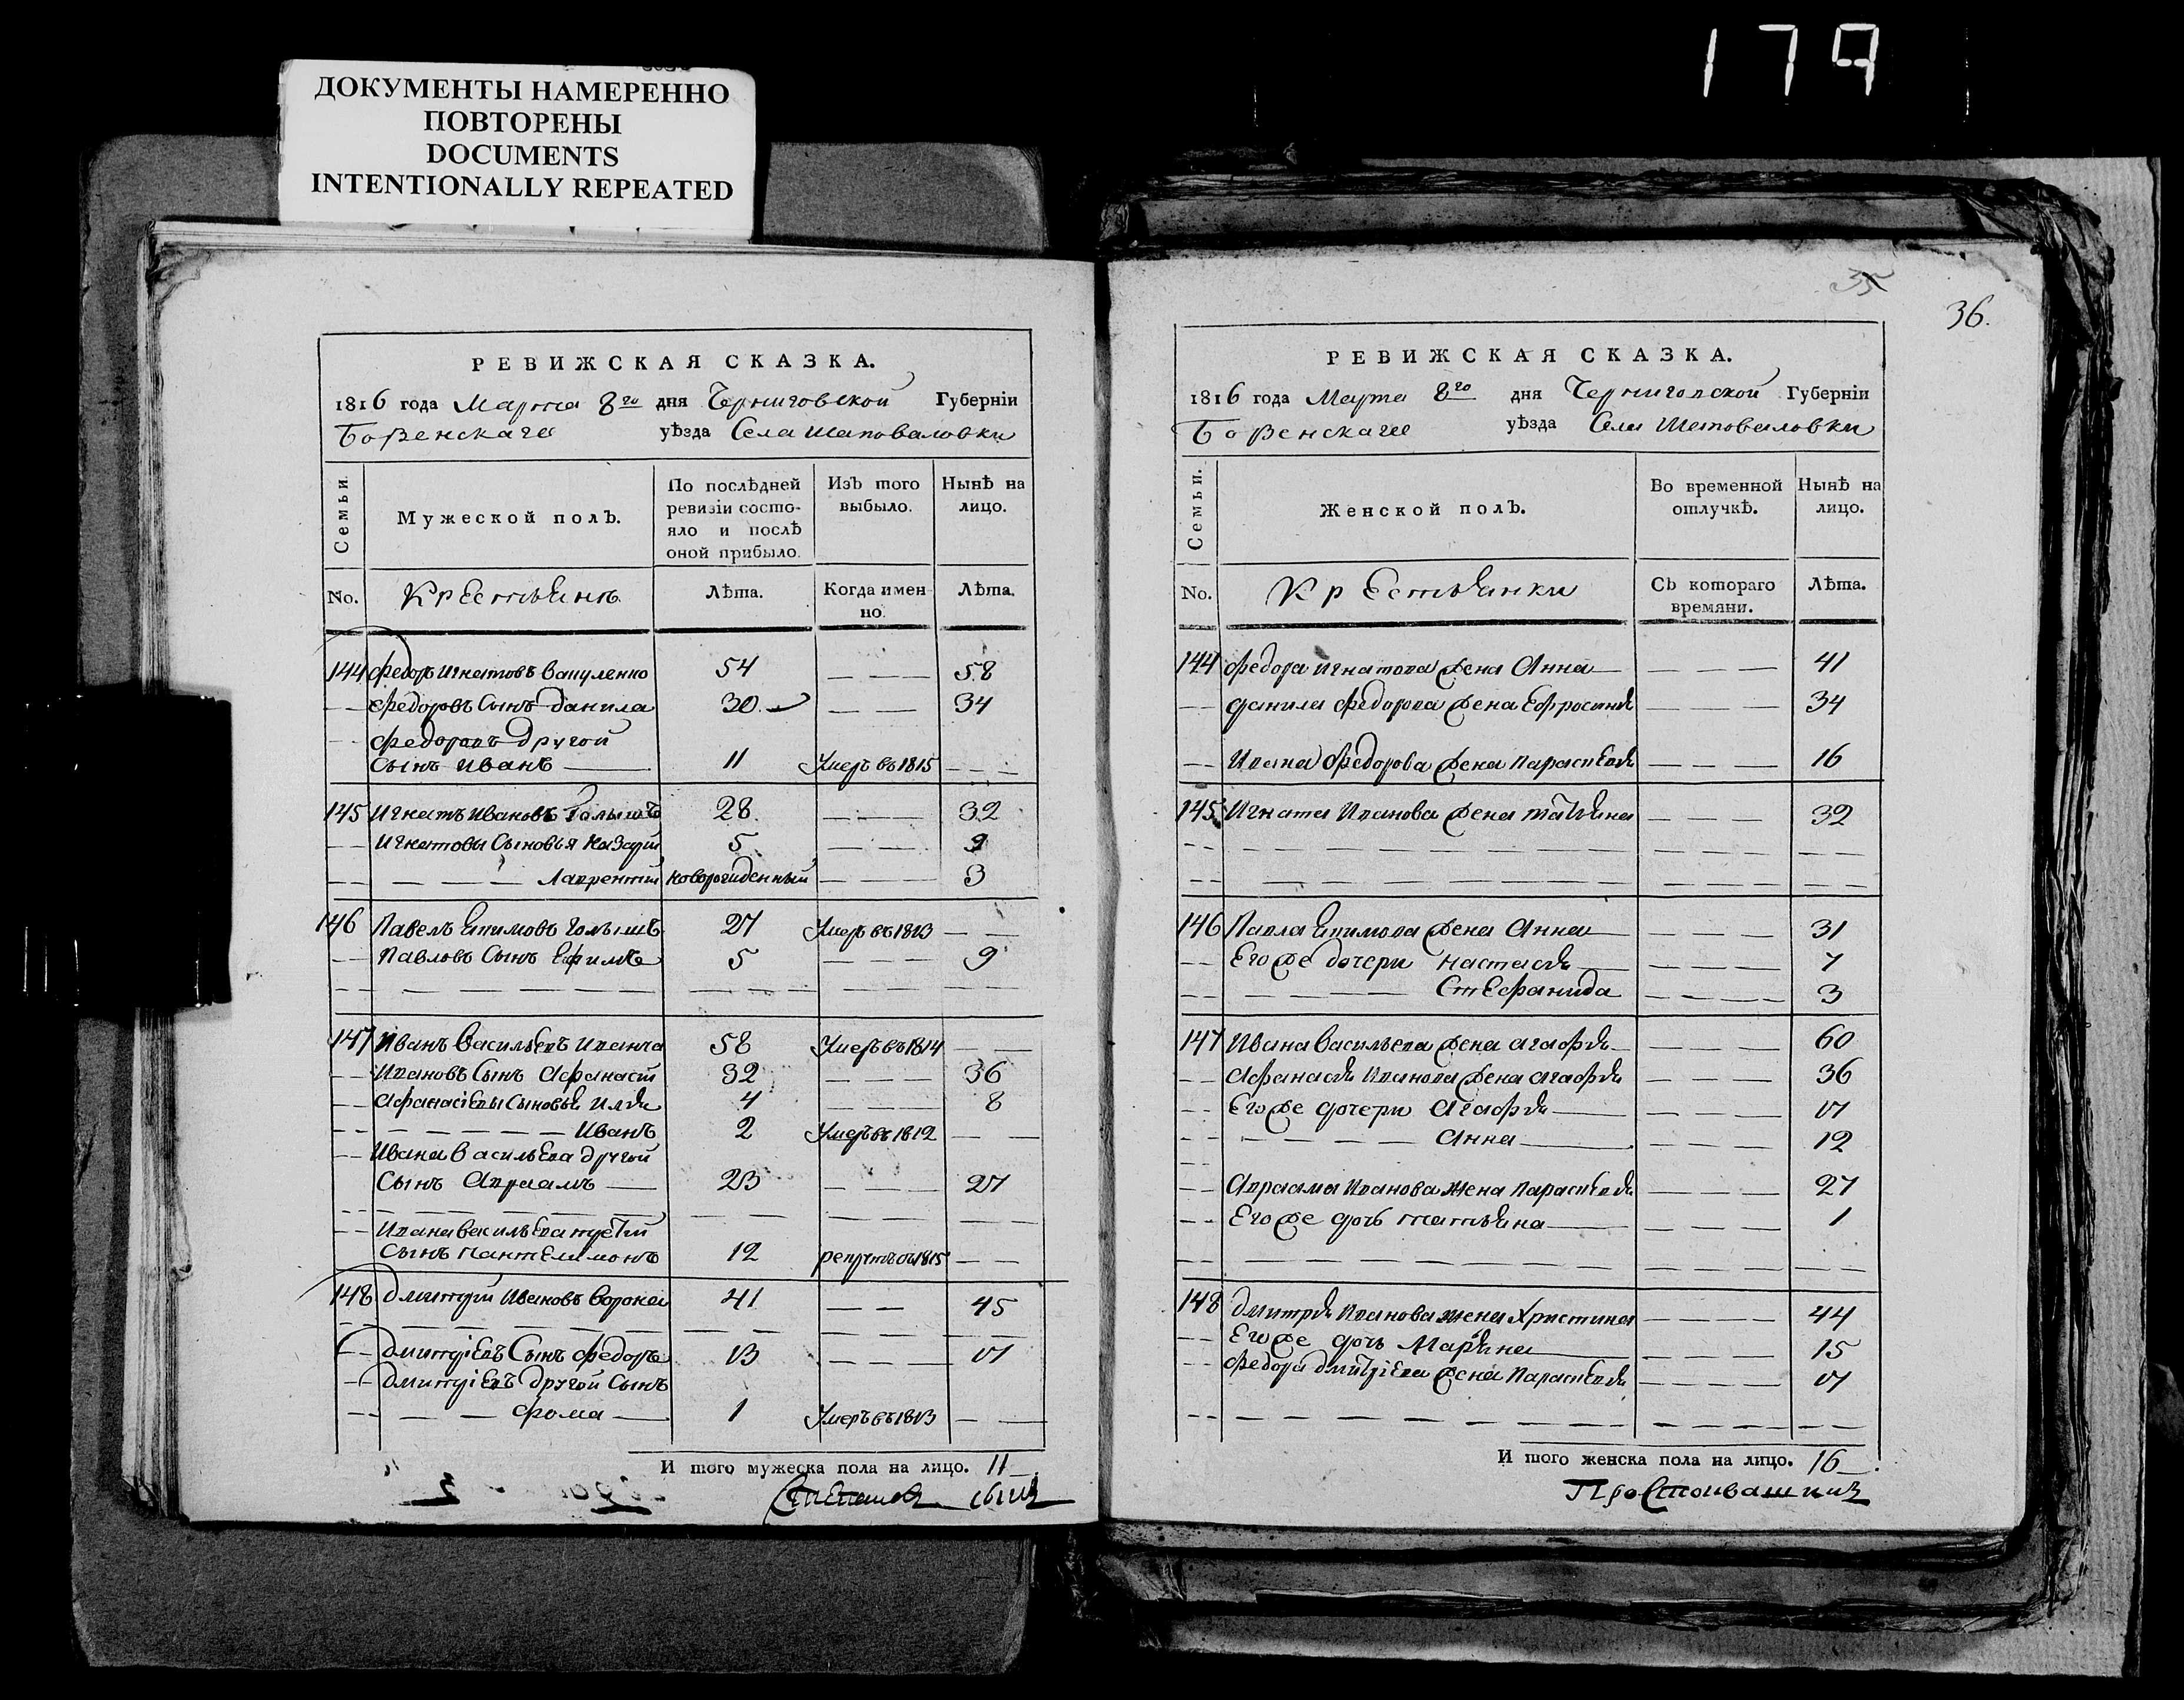 179
ДОКУМЕНТЫ НАМЕРЕННО
ПОВТОРЕНЫ
DOCUMENTS
INTENTIONALLY REPEATED
РЕВИЖСКАЯ СКАЗКА.
1816 года Марта 8го дня Черниговской Губерніи
Борзенскаго уѣзда Села Шаповаловки
Семьи.
Мужеской полъ.
По послѣдней ревизіи состо-
яло и послѣ
оной прибыло.
Изъ того выбыло.
Нынѣ на лицо.
No. Крестьянъ Лѣта. Когда имен
но. Лѣта.
144 Федоръ Игнатовъ Вакуленко 54 — — — 58
— — Федоровъ Сынъ Данила 30. — — 34
— — Федоровъ другой
Сынъ Иванъ — 11 Умеръ въ 1815 — — —
145 Игнатъ Ивановъ Голышъ 28. — — — 32
— — Игнатовы Сыновья Назарій 5 — — 9
— — — — — Лаврентій новорожденный — — — 3
146 Павелъ Епимовъ Голышъ 27 Умеръ въ 1813 — —
— — Павловъ Сынъ Ефимъ 5 — — — 9
147 Иванъ Васильевъ Иванча 58 Умеръ въ 1814 — —
— — Ивановъ Сынъ Афанасій 32 — — — 36
— — Афанасіевы Сыновья Илья 4 — — — 8
— — — — — — — — Иванъ 2 Умеръ въ 1812 — —
— — Ивана Васильева другой
Сынъ Авраамъ — 23 — — — 27
— — Ивана Васильева третій
Сынъ Пантелимонъ 12 рекрутъ въ 1815 — —
148 Дмитрій Ивановъ Ворона 41 — — 45
— — Дмитріевъ Сынъ Федоръ 13 — — — 17
— — Дмитріевъ другой Сынъ
— — — — — Фома — 1 Умеръ въ 1813 — —
И того мужеска пола на лицо. 11
35
36.
РЕВИЖСКАЯ СКАЗКА.
1816 года Марта 8го дня Черниговской Губерніи
Борзенскаго уѣзда Села Шаповаловки
Семьи.
Женской полъ.
Во временной отлучкѣ.
Нынѣ на лицо.
No. Крестьянки Съ котораго
времяни. Лѣта.
144 Федора Игнатова жена Анна — — — — 41
— — Данила Федорова жена Ефросинія — — — 34
— — Ивана Федорова жена Параскевія — — — 16
145 Игната Иванова жена Татьяна — — — 32
146 Павла Епимова жена Анна — — — — 31
— — Его же дочери Настасія — — — — 7
— — — — — Стефанида — — — — 3
147 Ивана Васильева жена Агафія — — — — 60
— — Афанасія Иванова жена Агафія — — — 36
— — Его же дочери Агафія — — — — 17
— — — — — — Анна — — — — 12
— — Авраама Иванова жена Параскевія — — — 27
— — Его же дочь Татьяна — — — — 1
148 Дмитрія Иванова жена Христина — — — — 44
— — Его же дочь Марина — — — — 15
— — Федора Дмитріева жена Параскевія — — — — 17
И того женска пола на лицо. 16